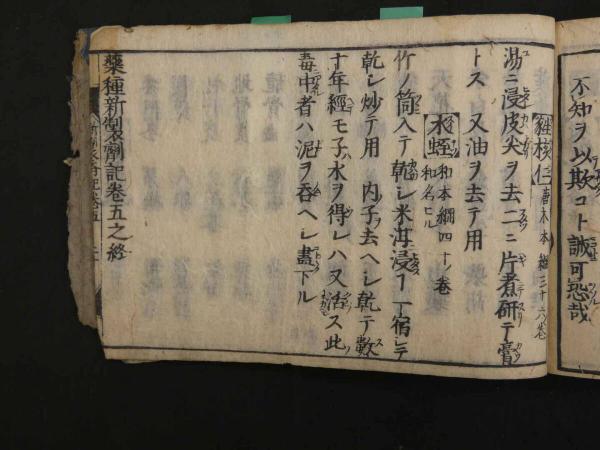 不知ヲ以欺コト誠可恐哉
蕤核仁 善木 本綱三十六巻
湯ニ浸皮尖ヲ去二ニ片煮研テ膏
トス 又油ヲ去テ用
水蛭 和 本綱四十ノ巻 和名ヒル
竹ノ筒入テ乾シ米泔浸フ一宿シテ
乾シ炒テ用 内子去ヘシ乾テ数
十年經モ子水ヲ得レハ又活ス此
毒中者ハ泥ヲ呑ヘシ盡下ル
藥種新製剤記卷五之終